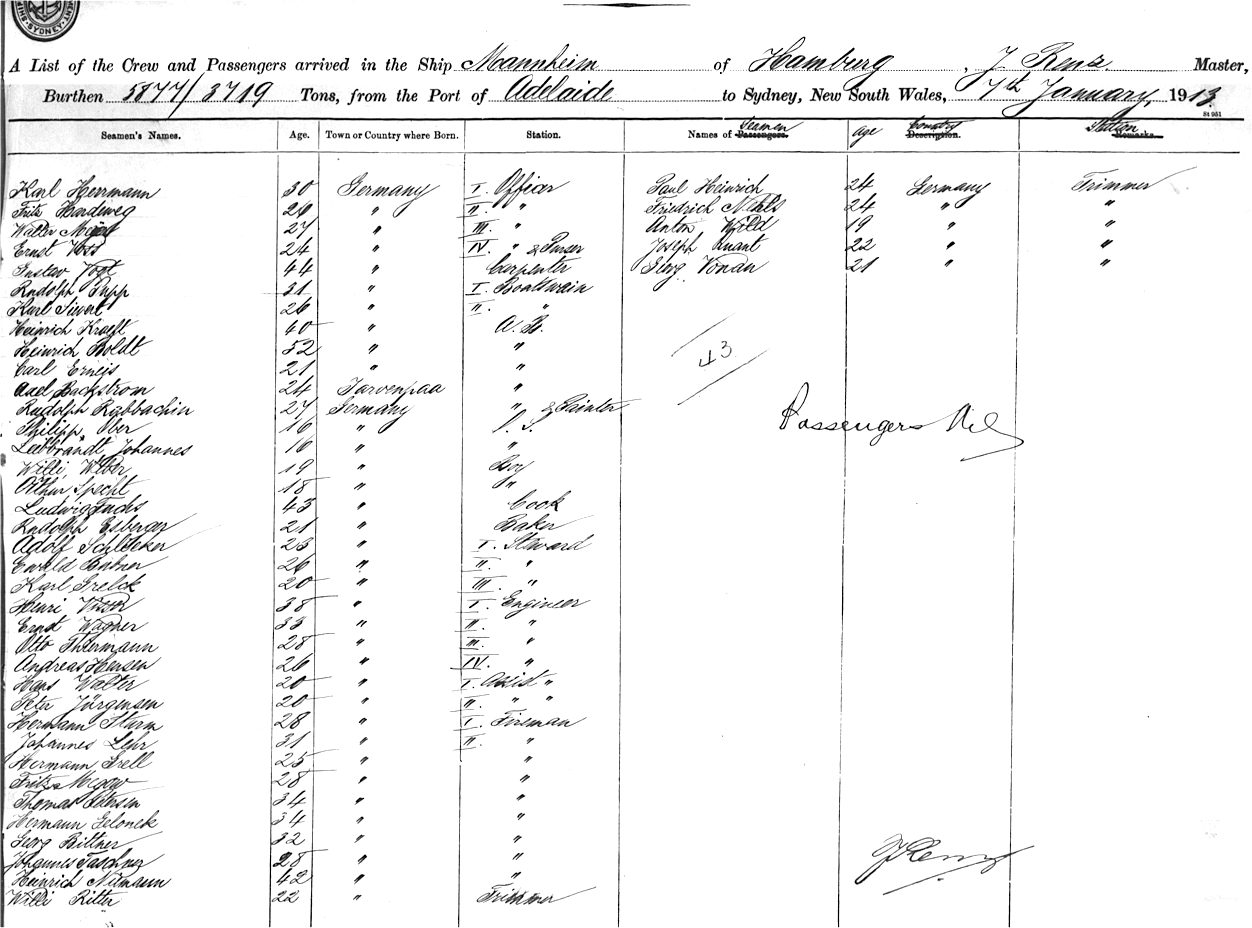 SYDNEY
A List of the Crew and Passengers arrived in the Ship Mannheim of Hamburg, J. Renz Master,
Burthen 5877/3719 Tons, from the Port of Adelaide to Sydney, New South Wales, 7th January, 1913
St 951
Seamen's Names. Age. Town or Country where Born. Station. Names of Passengers. Seamen age Description. Country Remarks. Station
Karl Herrmann 30 Germany I. Officer Paul Heinrich 24 Germany Trimmer
Fritz Hardeweg 26 " II. " Friedrich 24 " "
Walter 27 " III. " Anton Wild 19 " "
Ernst Voss 24 " IV. " & Purser Joseph Knant 22 " "
Gustav Vogt 44 " Carpenter Georg Vonau 21 " "
Rudolph Papp 31 " I. Boatswain
Karl Siewert 26 " II. "
Heinrich Kraeft 40 " A. B.
Heinrich Boldt 52 " "
Carl Erneis 21 " "
43
Axel Backstrom 24 Jarvenpaa "
Rudolph Rabbachin 27 Germany " & Painter
Passengers Nil
Philipp Ober 16 " O. S.
Leibbrandt Johannes 16 " "
Willi Weber 19 " Boy
Arthur Specht 18 " "
Ludwig Fuchs 43 " Cook
Rudolph Esberger 21 " Baker
Adolf Schlieker 23 " I. Steward
Ewald Bübner 26 " II. "
Karl Grelck 20 " III. "
Henri 38 " I. Engineer
Ernst Wagner 33 " II. "
Otto Thiermann 28 " III. "
Andreas Hansen 26 " IV. "
Hans Walter 20 " I. Assist "
Peter Jürgensen 20 " II. " "
Hermann Sturm 28 " I. Fireman
Johannes Lehr 31 " II. "
Hermann Grell 25 " "
Fritz Megow 28 " "
Thomas Petersen 34 " "
Hermann Gelonek 34 " "
Georg Bittner 32 " "
Johannes Taschner 28 " "
J Renz
Heinrich Niemann 42 " "
Willi Ritter 22 " Trimmer